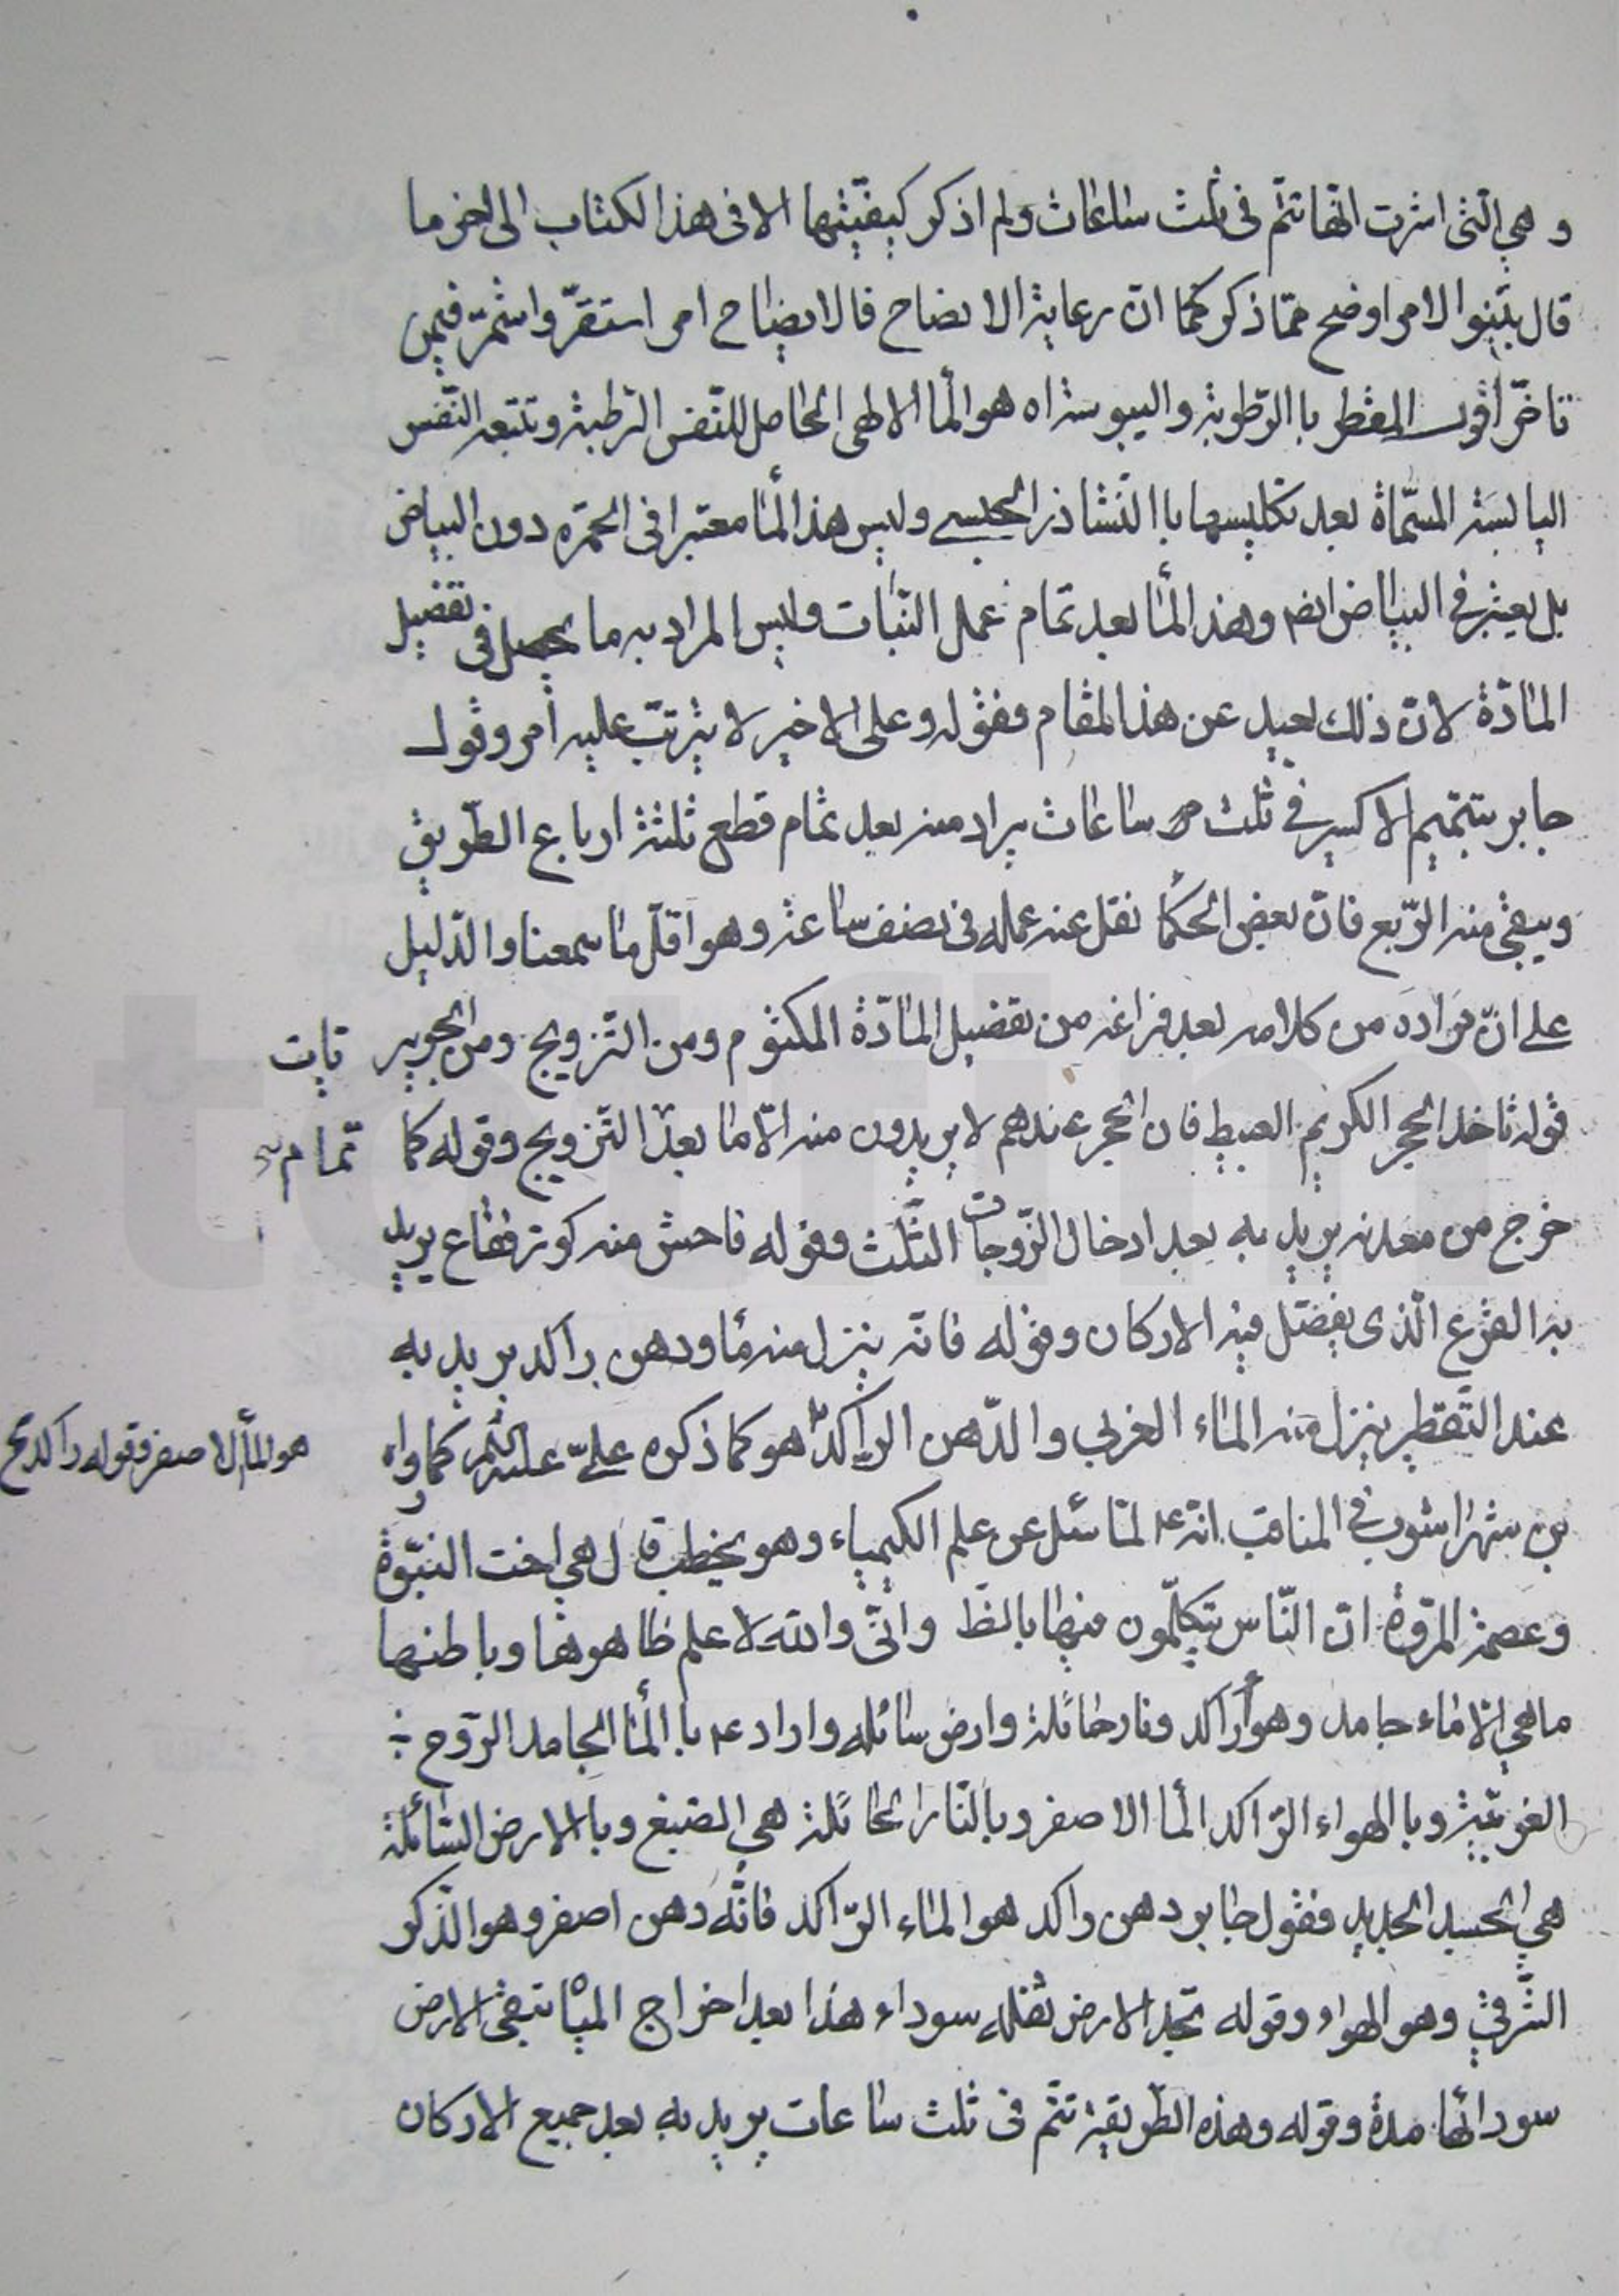 و هي التي اشرت انها تتم في ثلث ساعات ولم اذكر كيفيتها الا في هذا الكتاب الى اخر ما
قال بينوا الامر اوضح مما ذكر كما ان رعاية الايضاح فالايضاح امر استقر واستمر فيمن
تاخر اقول المقطر باالرطوبة واليبوسة اه هو المآ الالهى الحامل للنفس الرطبة وتتبعه النفس
اليابسة المسماة بعد تكليسها باالنشاذر الجسدى وليس هذا المآ معتبرا فى الحمرة دون البياض
بل يعتبر في البياض ايضا وهذا المآ بعد تمام عمل النبات وليس المراد به ما يحصل فى تفصيل
المادّة لانّ ذلك بعيد عن هذا المقام فقوله وعلى الاخير لا يترتب عليه امر وقول
جابر بتتميم الاكسير في ثلث ساعات يراد منه بعد تمام قطع ثلثة ارباع الطّريق
ويبقى منه الرّبع فانّ بعض الحكمآ نقل عنه عمله فى نصف ساعة وهو اقلّ ما سمعنا والدّليل
على انّ مراده من كلامه بعد فراغه من تفصيل المادّة المكتوم ومن التّزويج ومن الجوبير تابت
قوله تاخذ الحجر الكريم العبيط فان الحجر عندهم لا يريدون منه الّا ما بعد التّزويج وقوله كما تمام
خرج من معدنه يريد به بعد ادخال الزّوجات الثّلث وقوله فاحش منه كوز فقاع يريد
به القرع الّذى يفصّل فيه الاركان وقوله فانّه ينزل منه مآ ودهن راكد يريد به
عند التّقطير ينزل منه الماء الغربى والدّهن الرّاكد هو كما ذكره علىّ عليه السّلم كما رواه هو المآ الاصفر وقوله راكد يح
بن شهراشوب في المناقب انّه ع لمّا سئل عن علم الكيمياء وهو يخطب قال هي اخت النبّوة
وعصمة المروّة انّ النّاس يتكلّمون فيها بالظ وانّى والله لاعلم ظاهرها وباطنها
ما هي الّا ماء جامد وهوآ راكد ونار حائلة وارض سائله واراد ع باالمآ الجامد الرّوح
الغربيّة وبا الهواء الرّاكد المآ الاصفر وبالنّار الحائلة هي الصّبغ وباالارض السّائلة
هي الجسد الجديد فقول جابر دهن راكد هو الماء الرّاكد فانّه دهن اصفر وهو الذّكر
الشّرقي وهو الهواء وقوله تجد الارض ثفله سوداء هذا بعد اخراج المياه تبقى الارض
سودائها مدة وقوله وهذه الطّريقة تتم فى ثلث ساعات يريد به بعد جميع الاركان